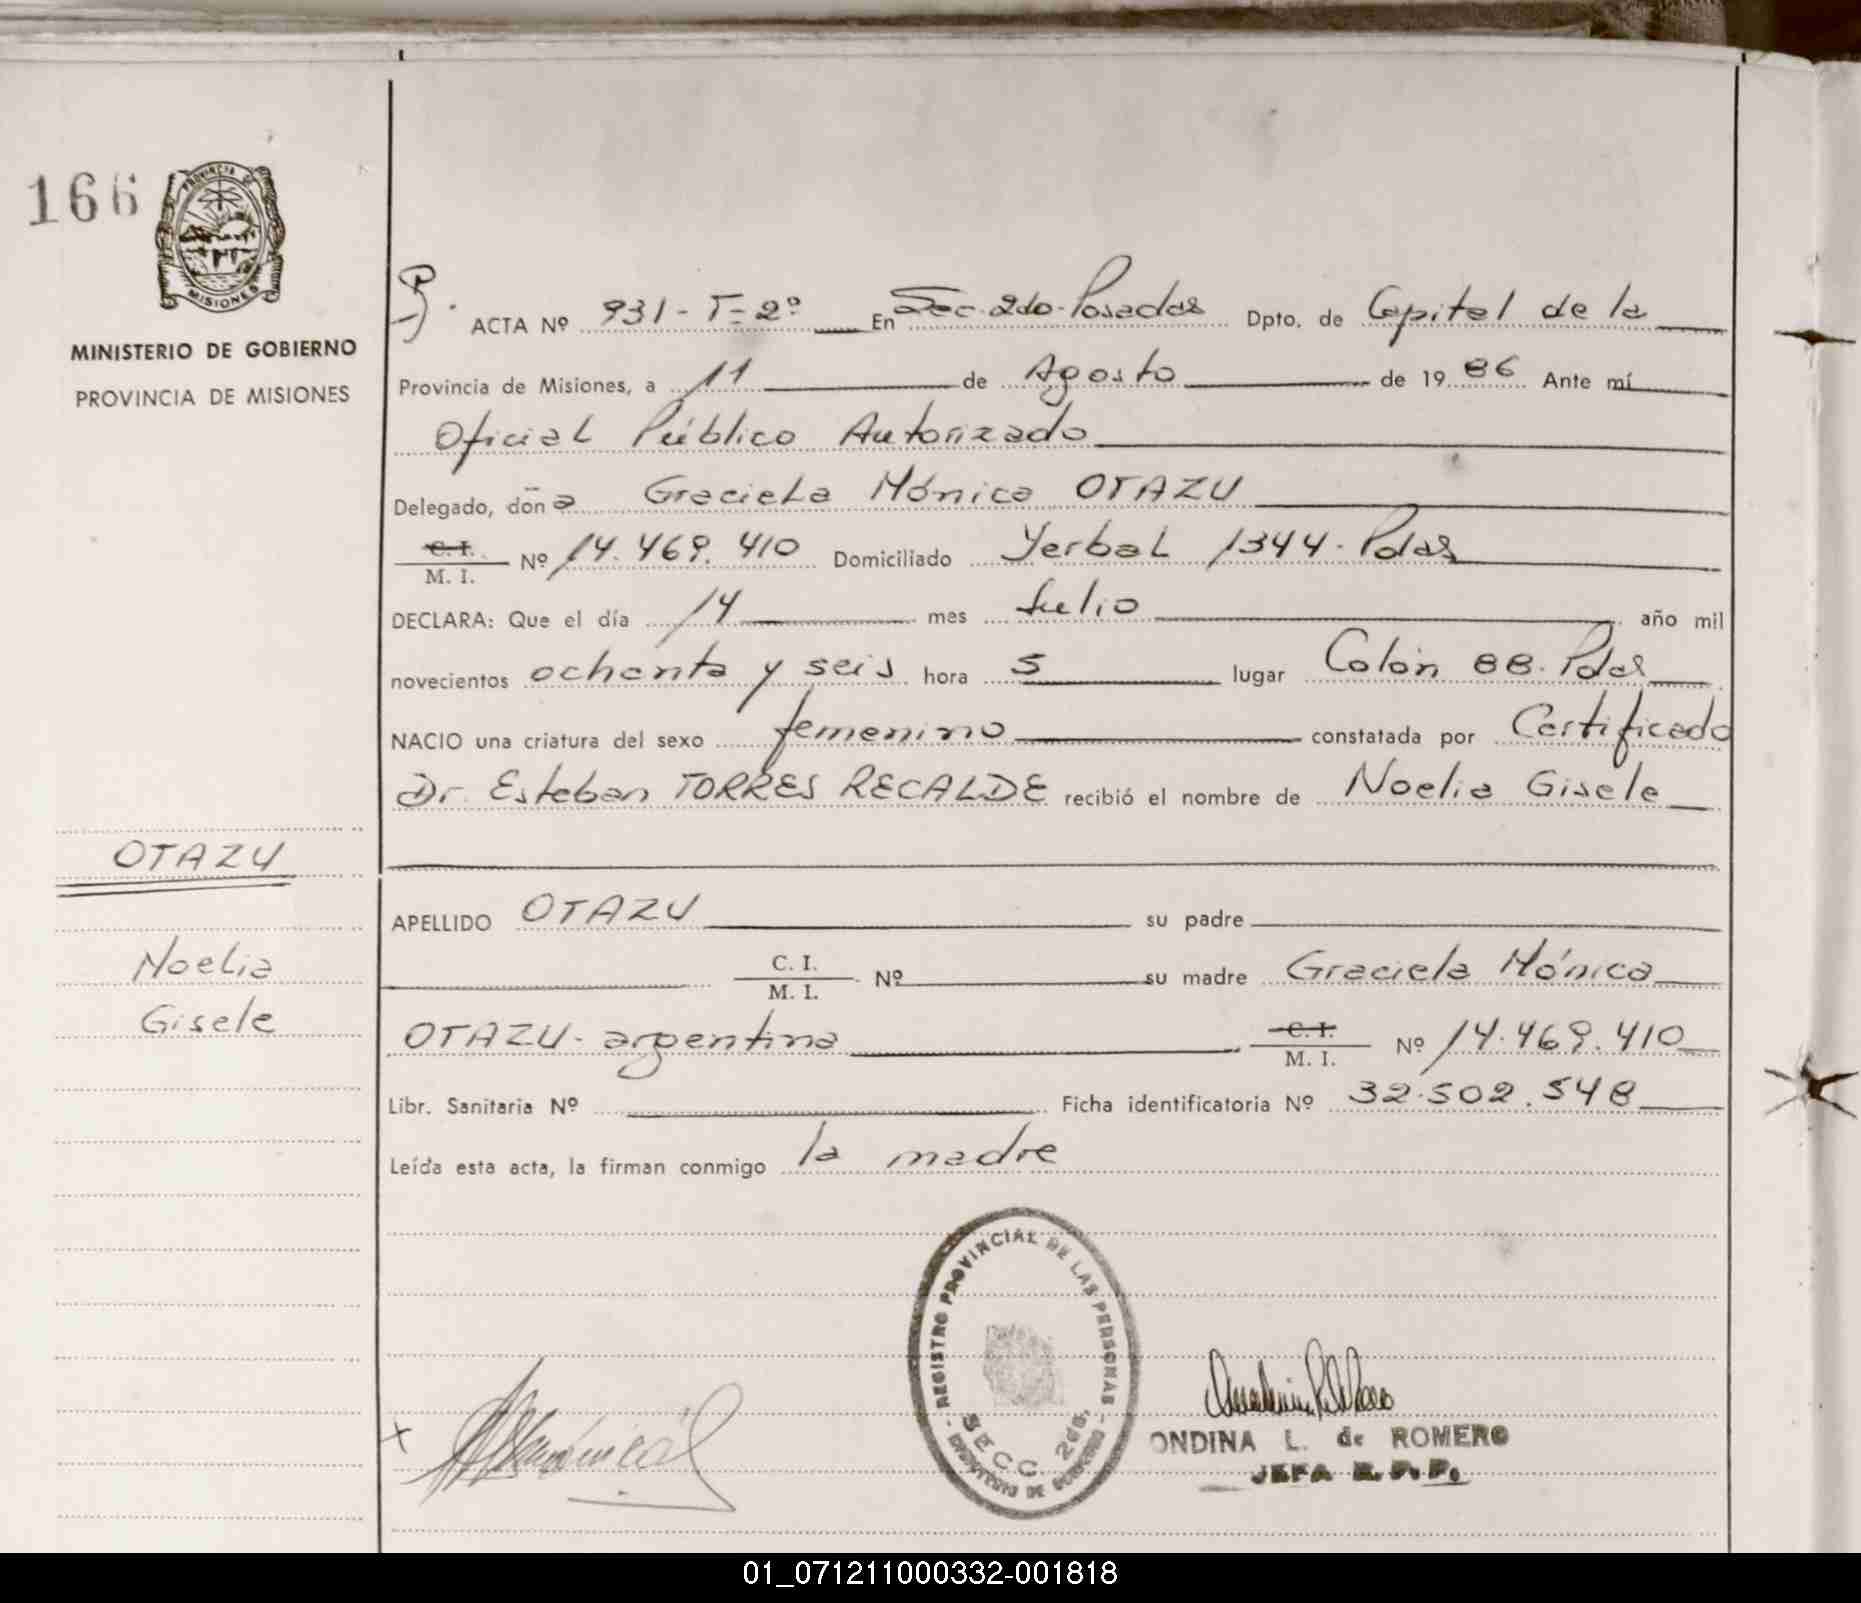 166
PROVINCIA DE
MISIONES
MINISTERIO DE GOBIERNO
PROVINCIA DE MISIONES
OTAZU
Noelia
Gisele
ACTA Nº 931 - T= 2º En Sec. 2do. Posadas Dpto. de Capital de la
Provincia de Misiones, a 11 de Agosto de 1986 Ante mí
Oficial Público Autorizado
Delegado, doña Graciela Mónica OTAZU
C. I.
M. I. Nº 14.469.410 Domiciliado Yerbal 1344. Pdas
DECLARA: Que el día 14 mes Julio año mil
novecientos ochenta y seis hora 5 lugar Colón 88. Pdas
NACIO una criatura del sexo femenino constatada por Certificado
Dr. Esteban TORRES RECALDE recibió el nombre de Noelia Gisele
APELLIDO OTAZU su padre
C. I.
M. I. Nº su madre Graciela Mónica
OTAZU - argentina C. I.
M. I. Nº 14.469.410
Libr. Sanitaria Nº Ficha identificatoria Nº 32.502.548
Leída esta acta, la firman conmigo la madre
REGISTRO PROVINCIAL DE LAS PERSONAS
SECC. 2da.
MINISTERIO DE GOBIERNO
ONDINA L. de ROMERO
JEFA R. P. P.
01_071211000332-001818